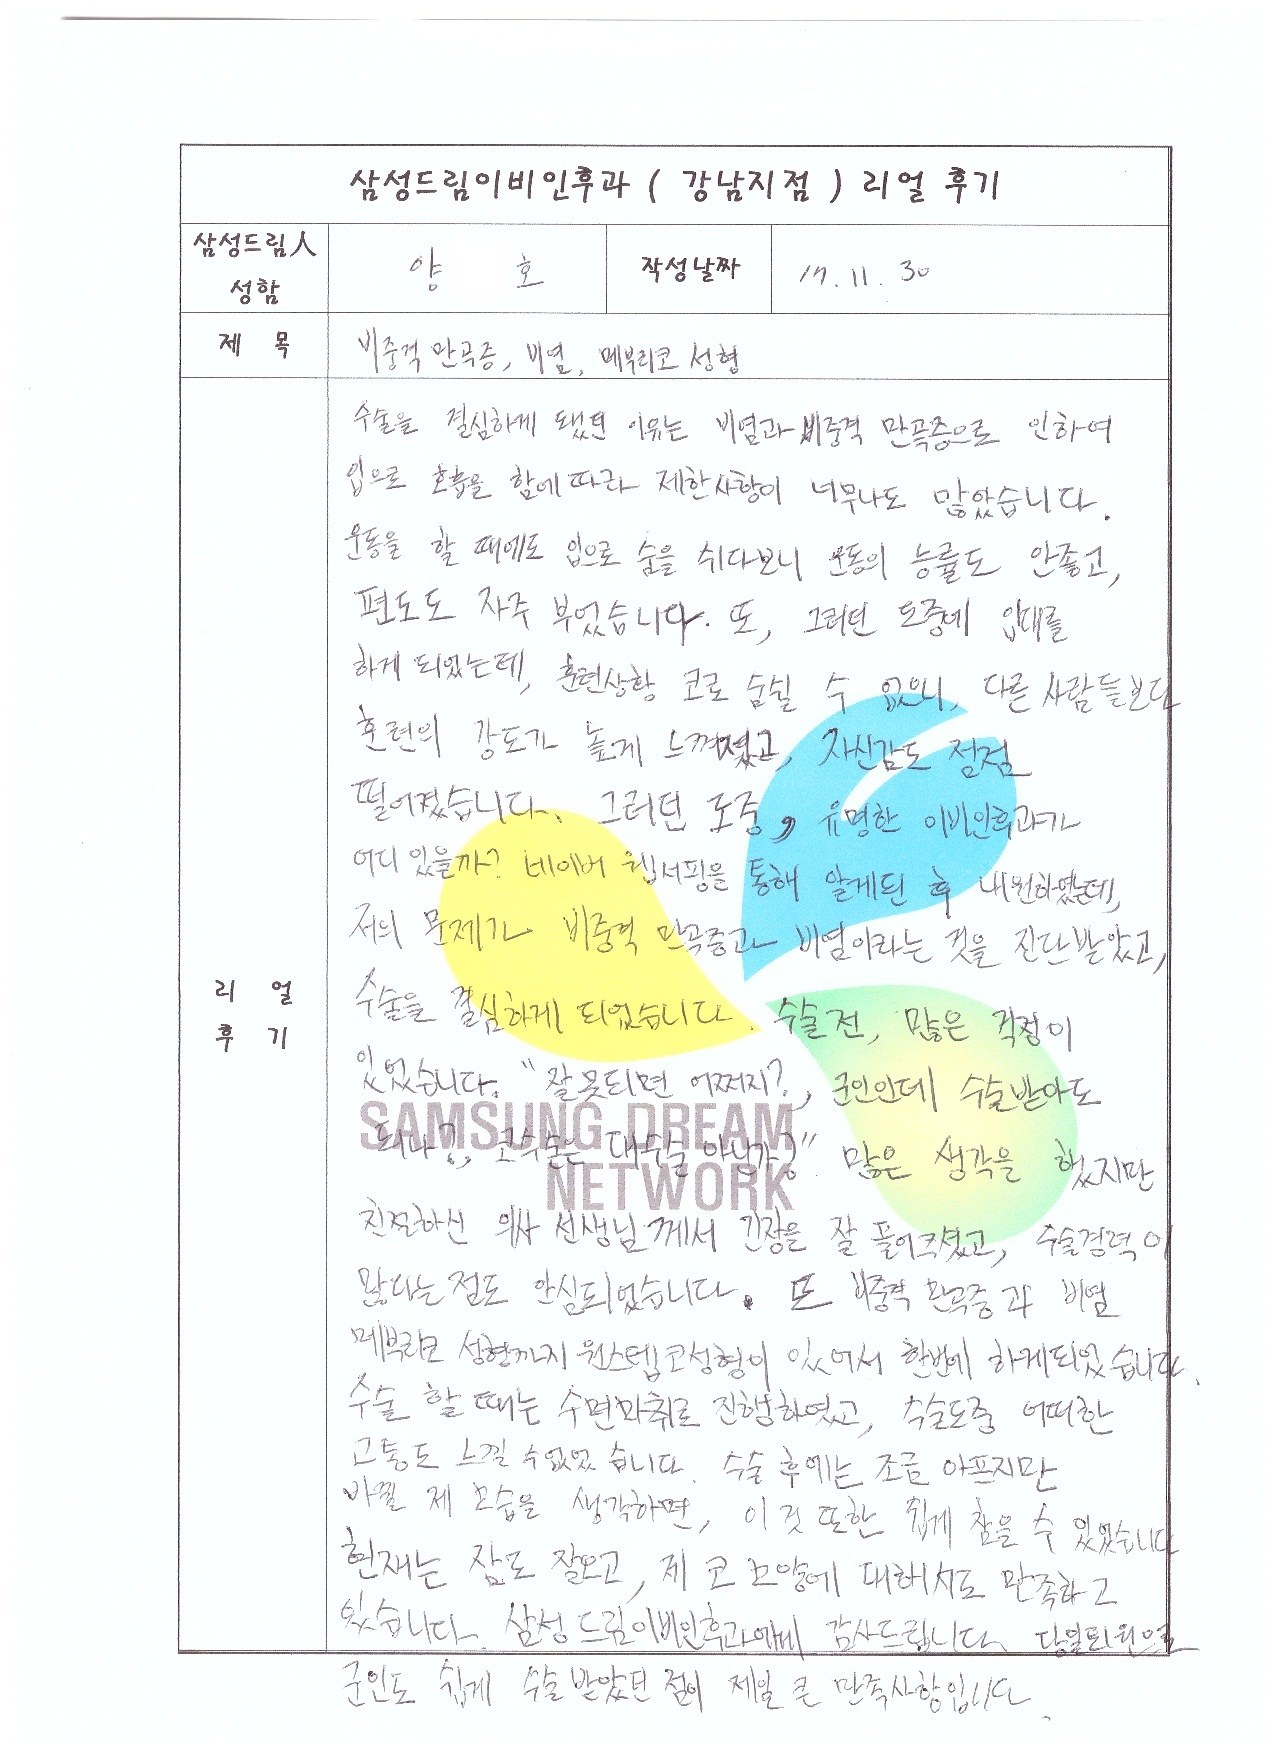 삼성드림이비인후과 ( 강남지점 ) 리얼 후기
삼성드림人 성함
양 호
작성날짜
17. 11. 30
제 목
비중격 만곡증, 비염, 메부리코 성형
리 얼 후 기
수술을 결심하게 됐던 이유는 비염과 비중격 만곡증으로 인하여
입으로 호흡을 함에 따라 제한사항이 너무나도 많았습니다.
운동을 할 때에도 입으로 숨을 쉬다보니 운동의 능률도 안좋고,
편도도 자주 부었습니다. 또, 그러던 도중에 입대를
하게 되었는데, 훈련상황 코로 숨쉴 수 없으니, 다른 사람들보다
훈련의 강도가 높게 느껴졌고, 자신감도 점점
떨어졌습니다. 그러던 도중, 유명한 이비인후과가
어디 있을까? 네이버 웹서핑을 통해 알게된 후 내원하였는데,
저의 문제가 비중격 만곡증과 비염이라는 것을 진단받았고,
수술을 결심하게 되었습니다. 수술전, 많은 걱정이
있었습니다. "잘못되면 어쩌지?, 군인인데 수술받아도
되나?, 코수술은 대수술 아닌가?" 많은 생각을 했지만
친절하신 의사 선생님께서 긴장을 잘 풀어주셨고, 수술경력이
많다는 점도 안심되었습니다. 또 비중격 만곡증과 비염
메부리코 성형까지 원스텝코성형이 있어서 한번에 하게되었습니다.
수술 할 때는 수면마취로 진행하였고, 수술도중 어떠한
고통도 느낄 수없었습니다. 수술 후에는 조금 아프지만
바뀔 제 모습을 생각하면, 이것 또한 쉽게 참을 수 있었습니다
현재는 잠도 잘오고, 제 코 모양에 대해서도 만족하고
있습니다. 삼성드림이비인후과에게 감사드립니다. 당일퇴원으로
군인도 쉽게 수술 받았던 점이 제일 큰 만족사항입니다.
SAMSUNG DREAM
NETWORK